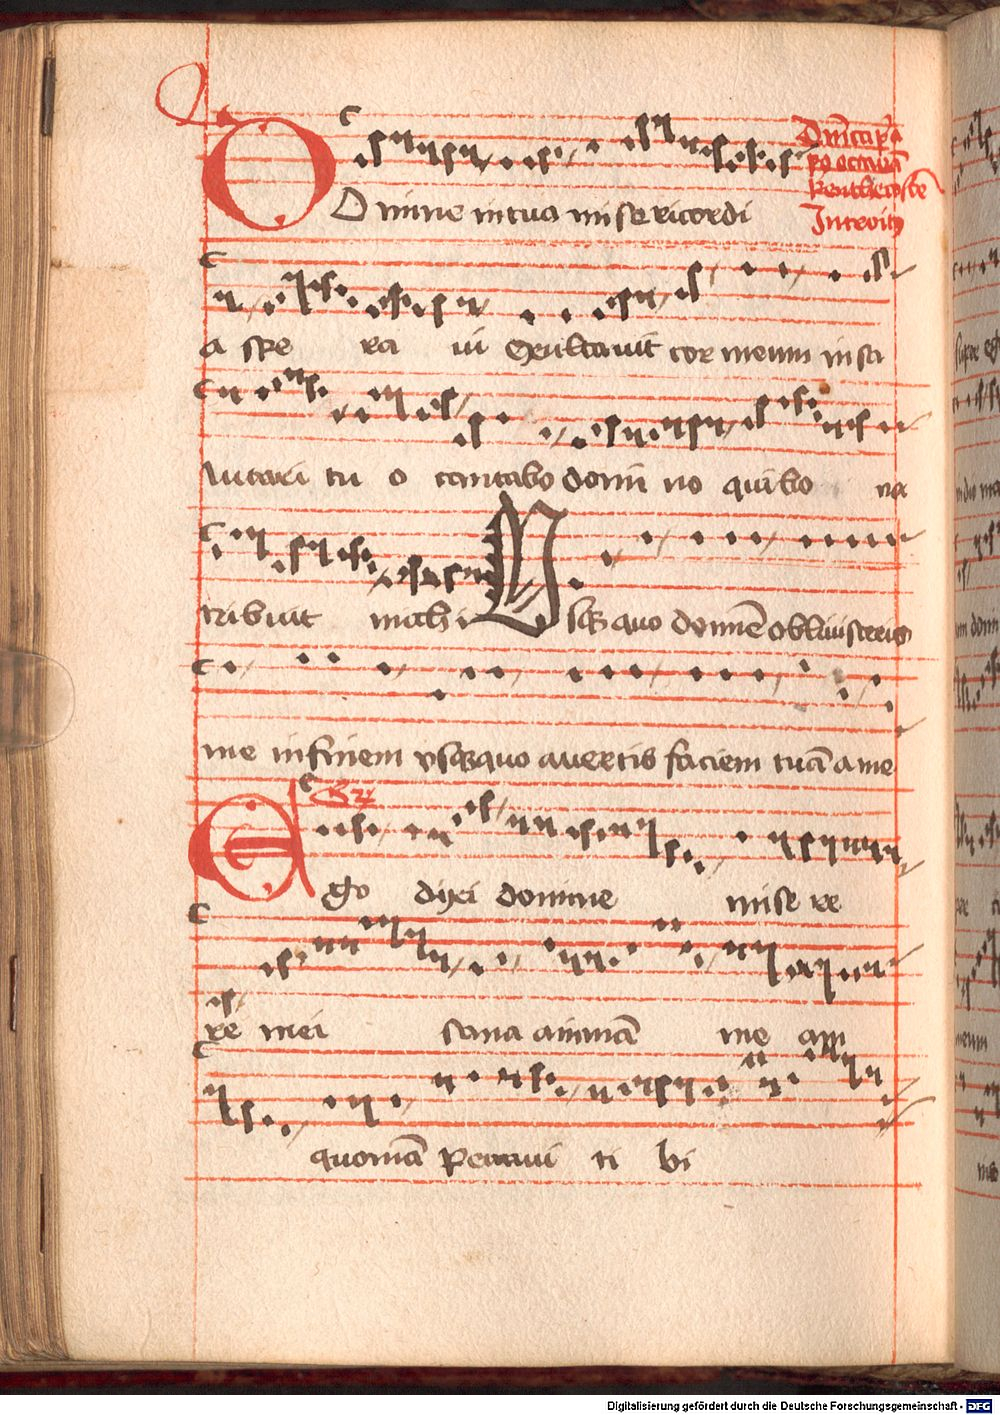 Dñica pͥa
po octauā
Penthecoste
Introitꝰ
Domine in tua misericordi
a spe ra ui Exultauit cor meum in sa
lutari tu o cantabo domi no qui bo na
tribuit michi Usqꝫ quo domine obliuisceris
me in finem vsqꝫ quo auertis faciem tuā a me
Gr
Ego dixi domine mise re
re mei sana animā me am
quoniā peccaui ti bi
Digitalisierung gefördert durch die Deutsche Forschungsgemeinschaft - DFG